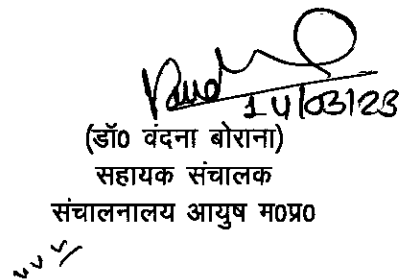 14/03/23
(डॉ0 वंदना बोराना)
सहायक संचालक
संचालनालय आयुष म0प्र0